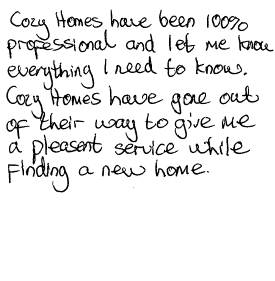 Cozy Homes have been 100%
professional and let me know
everything I need to know.
Cozy Homes have gone out
of their way to give me
a pleasent service while
Finding a new home.